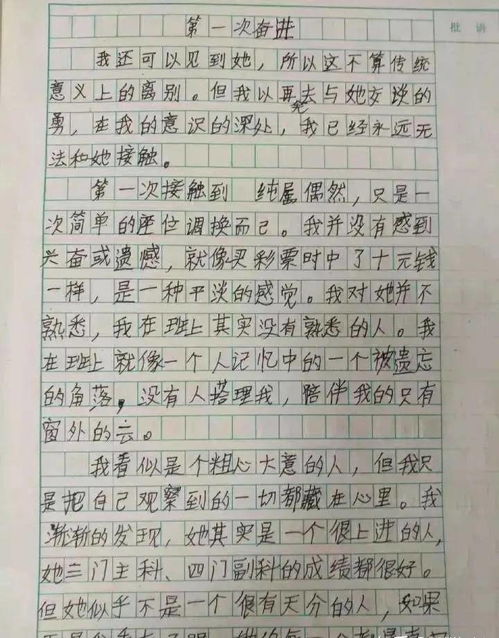 第一次奋进
批语
我还可以见到她，所以这不算传统
意义上的离别。但我以再去与她交谈的
勇，在我的意识的深处，我已经永远无
法和她接触。
第一次接触到 纯属偶然，只是一
次简单的座位调换而已。我并没有感到
兴奋或遗憾，就像买彩票时中了十元钱
一样，是一种平淡的感觉。我对她并不
熟悉，我在班上其实没有熟悉的人。我
在班上就像一个人记忆中的一个被遗忘
的角落，没有人搭理我，陪伴我的只有
窗外的云。
我看似是个粗心大意的人，但我只
是把自己观察到的一切都藏在心里。我
渐渐的发现，她其实是一个很上进的人，
她三门主科、四门副科的成绩都很好。
但她似乎不是一个很有天分的人，如果